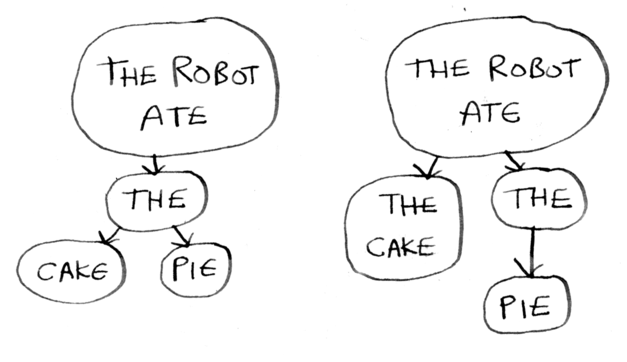 THE ROBOT
ATE
THE
CAKE
PIE
THE ROBOT
ATE
THE
CAKE
THE
PIE